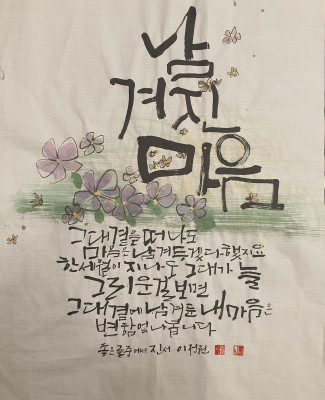 남
겨진
마음
그대 곁을 떠나도
마음은 남겨두겠다 했지요
한 세월이 지나도 그대가 늘
그리운걸 보면
그대 곁에 남겨둔 내 마음은
변함없나 봅니다
좋은글 중에서 진서 이정원